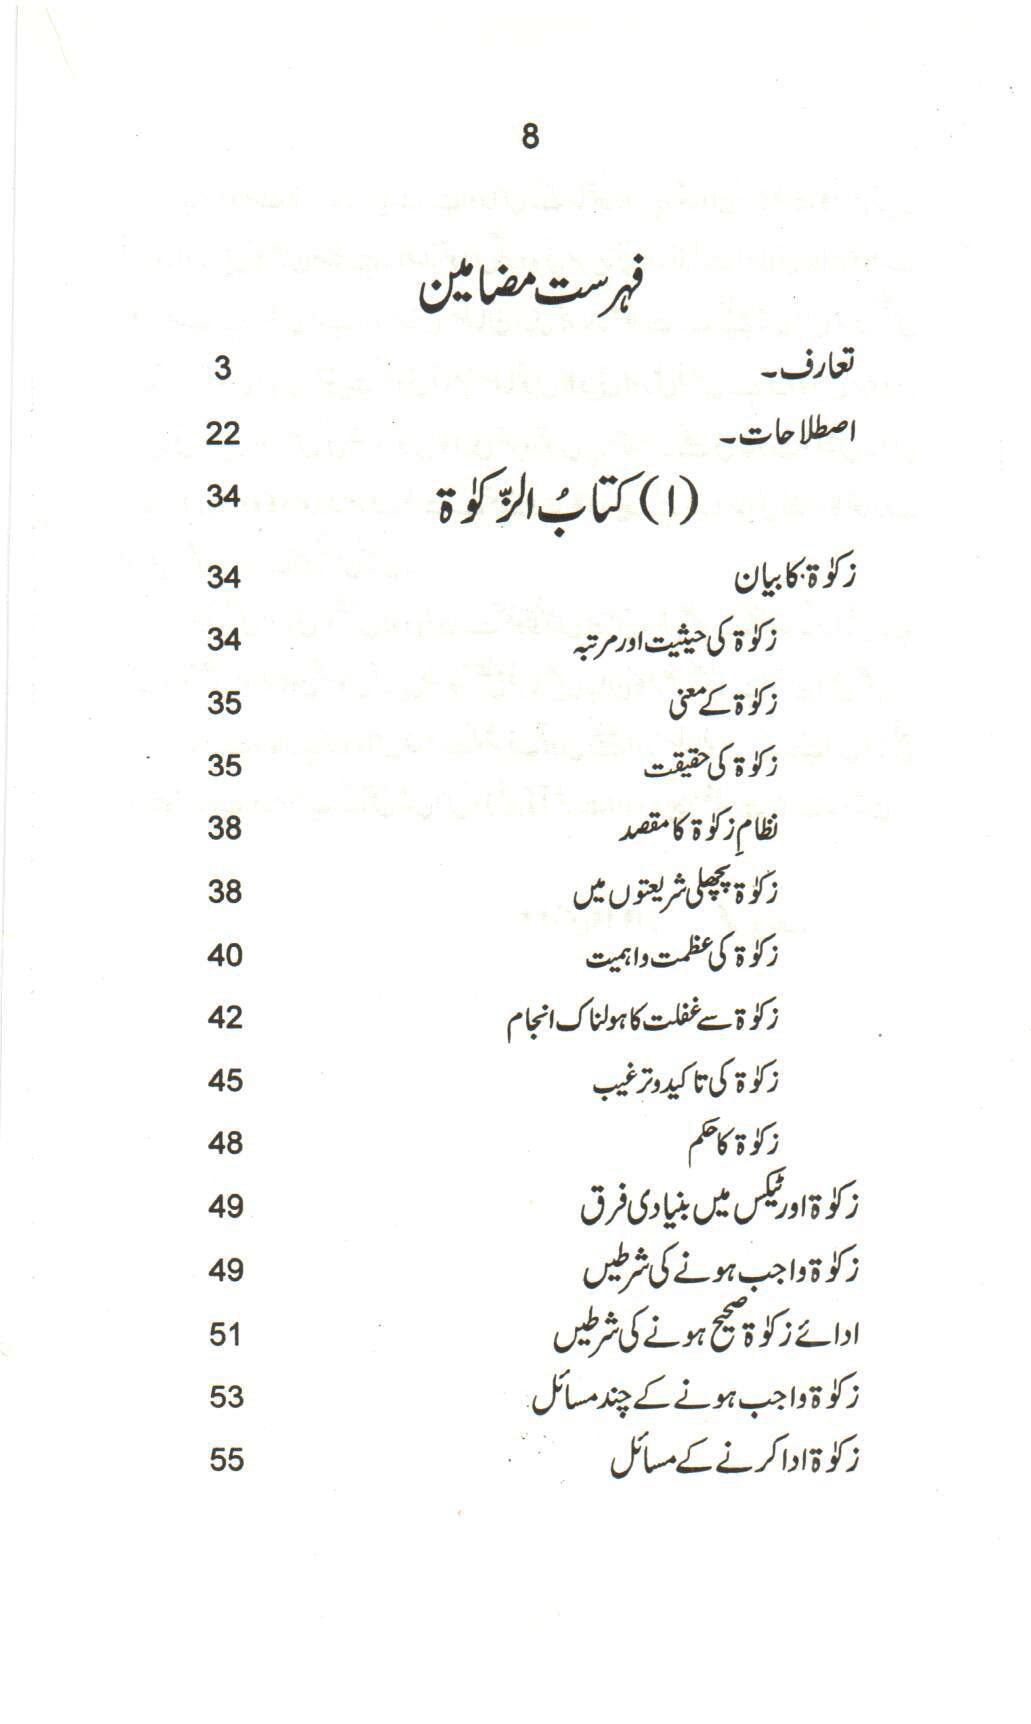 8
فہرست مضامین
تعارف۔ 3
اصطلاحات۔ 22
(۱) کتابُ الزّکوٰۃ 34
زکوٰۃ کا بیان 34
زکوٰۃ کی حیثیت اور مرتبہ 34
زکوٰۃ کے معنی 35
زکوٰۃ کی حقیقت 35
نظامِ زکوٰۃ کا مقصد 38
زکوٰۃ پچھلی شریعتوں میں 38
زکوٰۃ کی عظمت و اہمیت 40
زکوٰۃ سے غفلت کا ہولناک انجام 42
زکوٰۃ کی تاکید و ترغیب 45
زکوٰۃ کا حکم 48
زکوٰۃ اور ٹیکس میں بنیادی فرق 49
زکوٰۃ واجب ہونے کی شرطیں 49
ادائے زکوٰۃ صحیح ہونے کی شرطیں 51
زکوٰۃ واجب ہونے کے چند مسائل 53
زکوٰۃ ادا کرنے کے مسائل 55